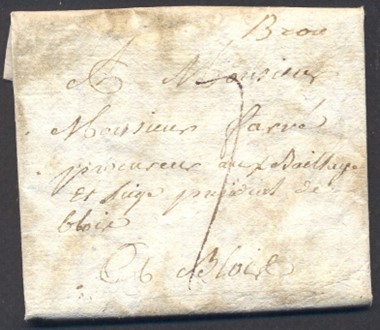 Brou
A Monsieur
Monsieur Farré
procureur aux Bailliage
et siege presidial de
blois
A Blois